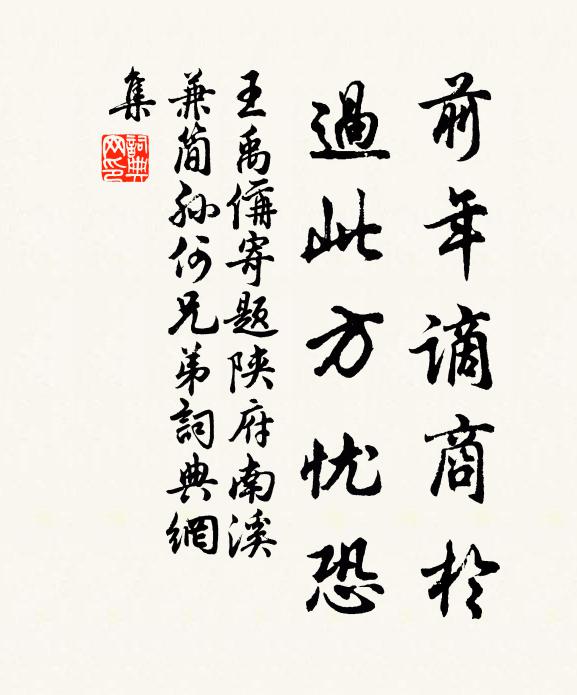 前年谪商於
過此方忧恐
王禹偁寄题陕府南溪
兼简孙何兄弟詞典網
集
詞典网印